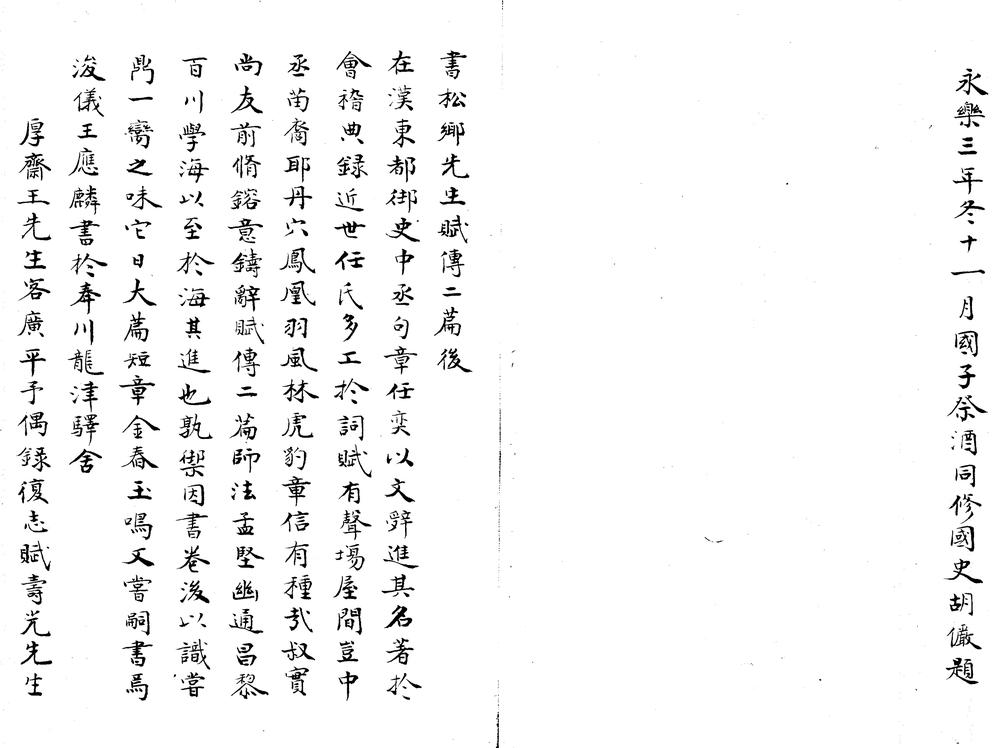 永樂三年冬十一月國子祭酒同修國史胡儼題
書松鄉先生賦傳二篇後
在漢東都御史中丞句章任奕以文辭進其名著於
會稽典録近世任氏多工於詞賦有聲塲屋間豈中
丞苗裔耶丹穴鳳凰羽風林虎豹章信有種哉叔實
尚友前脩鎔意鑄辭賦傳二篇師法孟堅幽通昌黎
百川學海以至於海其進也孰禦因書卷後以識嘗
鼎一臠之味它日大篇短章金春玉鳴又嘗嗣書焉
浚儀王應麟書於奉川龍津驛舍
厚齋王先生客廣平予偶録復志賦壽光先生